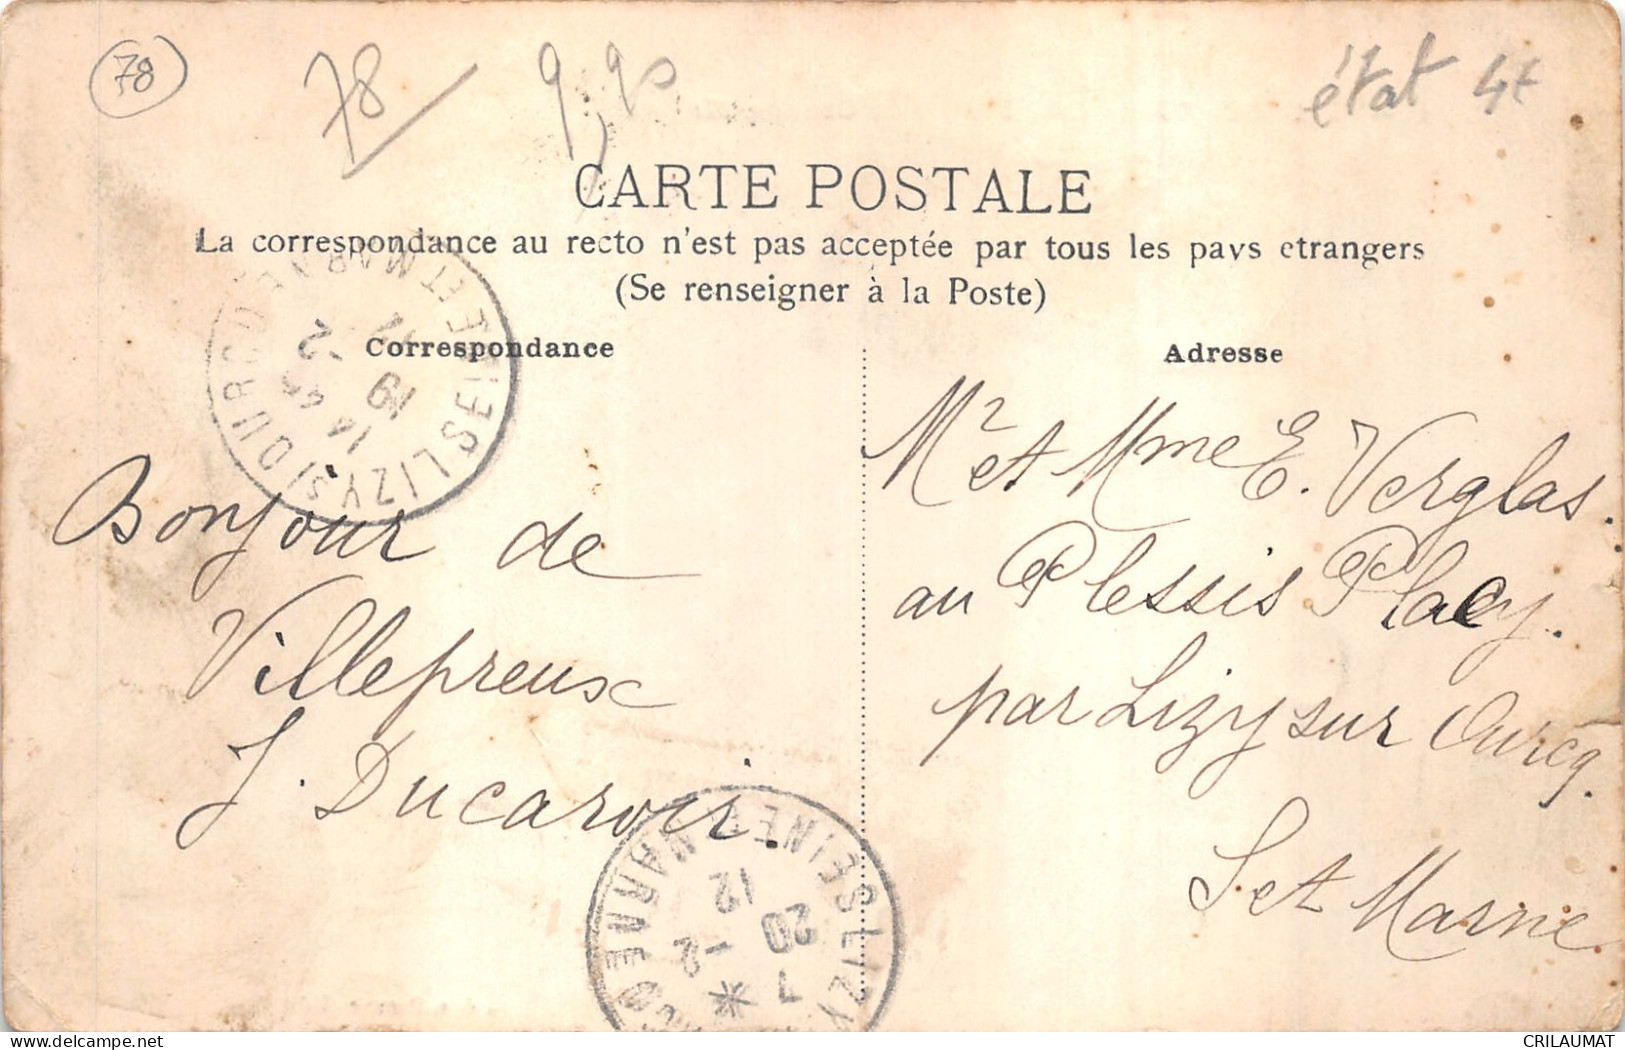 78
78
9,90
état 4t
CARTE POSTALE
La correspondance au recto n'est pas acceptée par tous les pays etrangers
(Se renseigner à la Poste)
Correspondance
Adresse
LIZY S/ OURCQ SEINE ET MARNE
14
19 -2
12
Bonjour de
Villepreux
J. Ducaroir.
Mr et Mme E. Verglas.
au Plessis Placy.
par Lizy sur Ourcq.
S. et Marne
LIZY SEINE ET MARNE
7 *
20 -2
12
CRILAUMAT